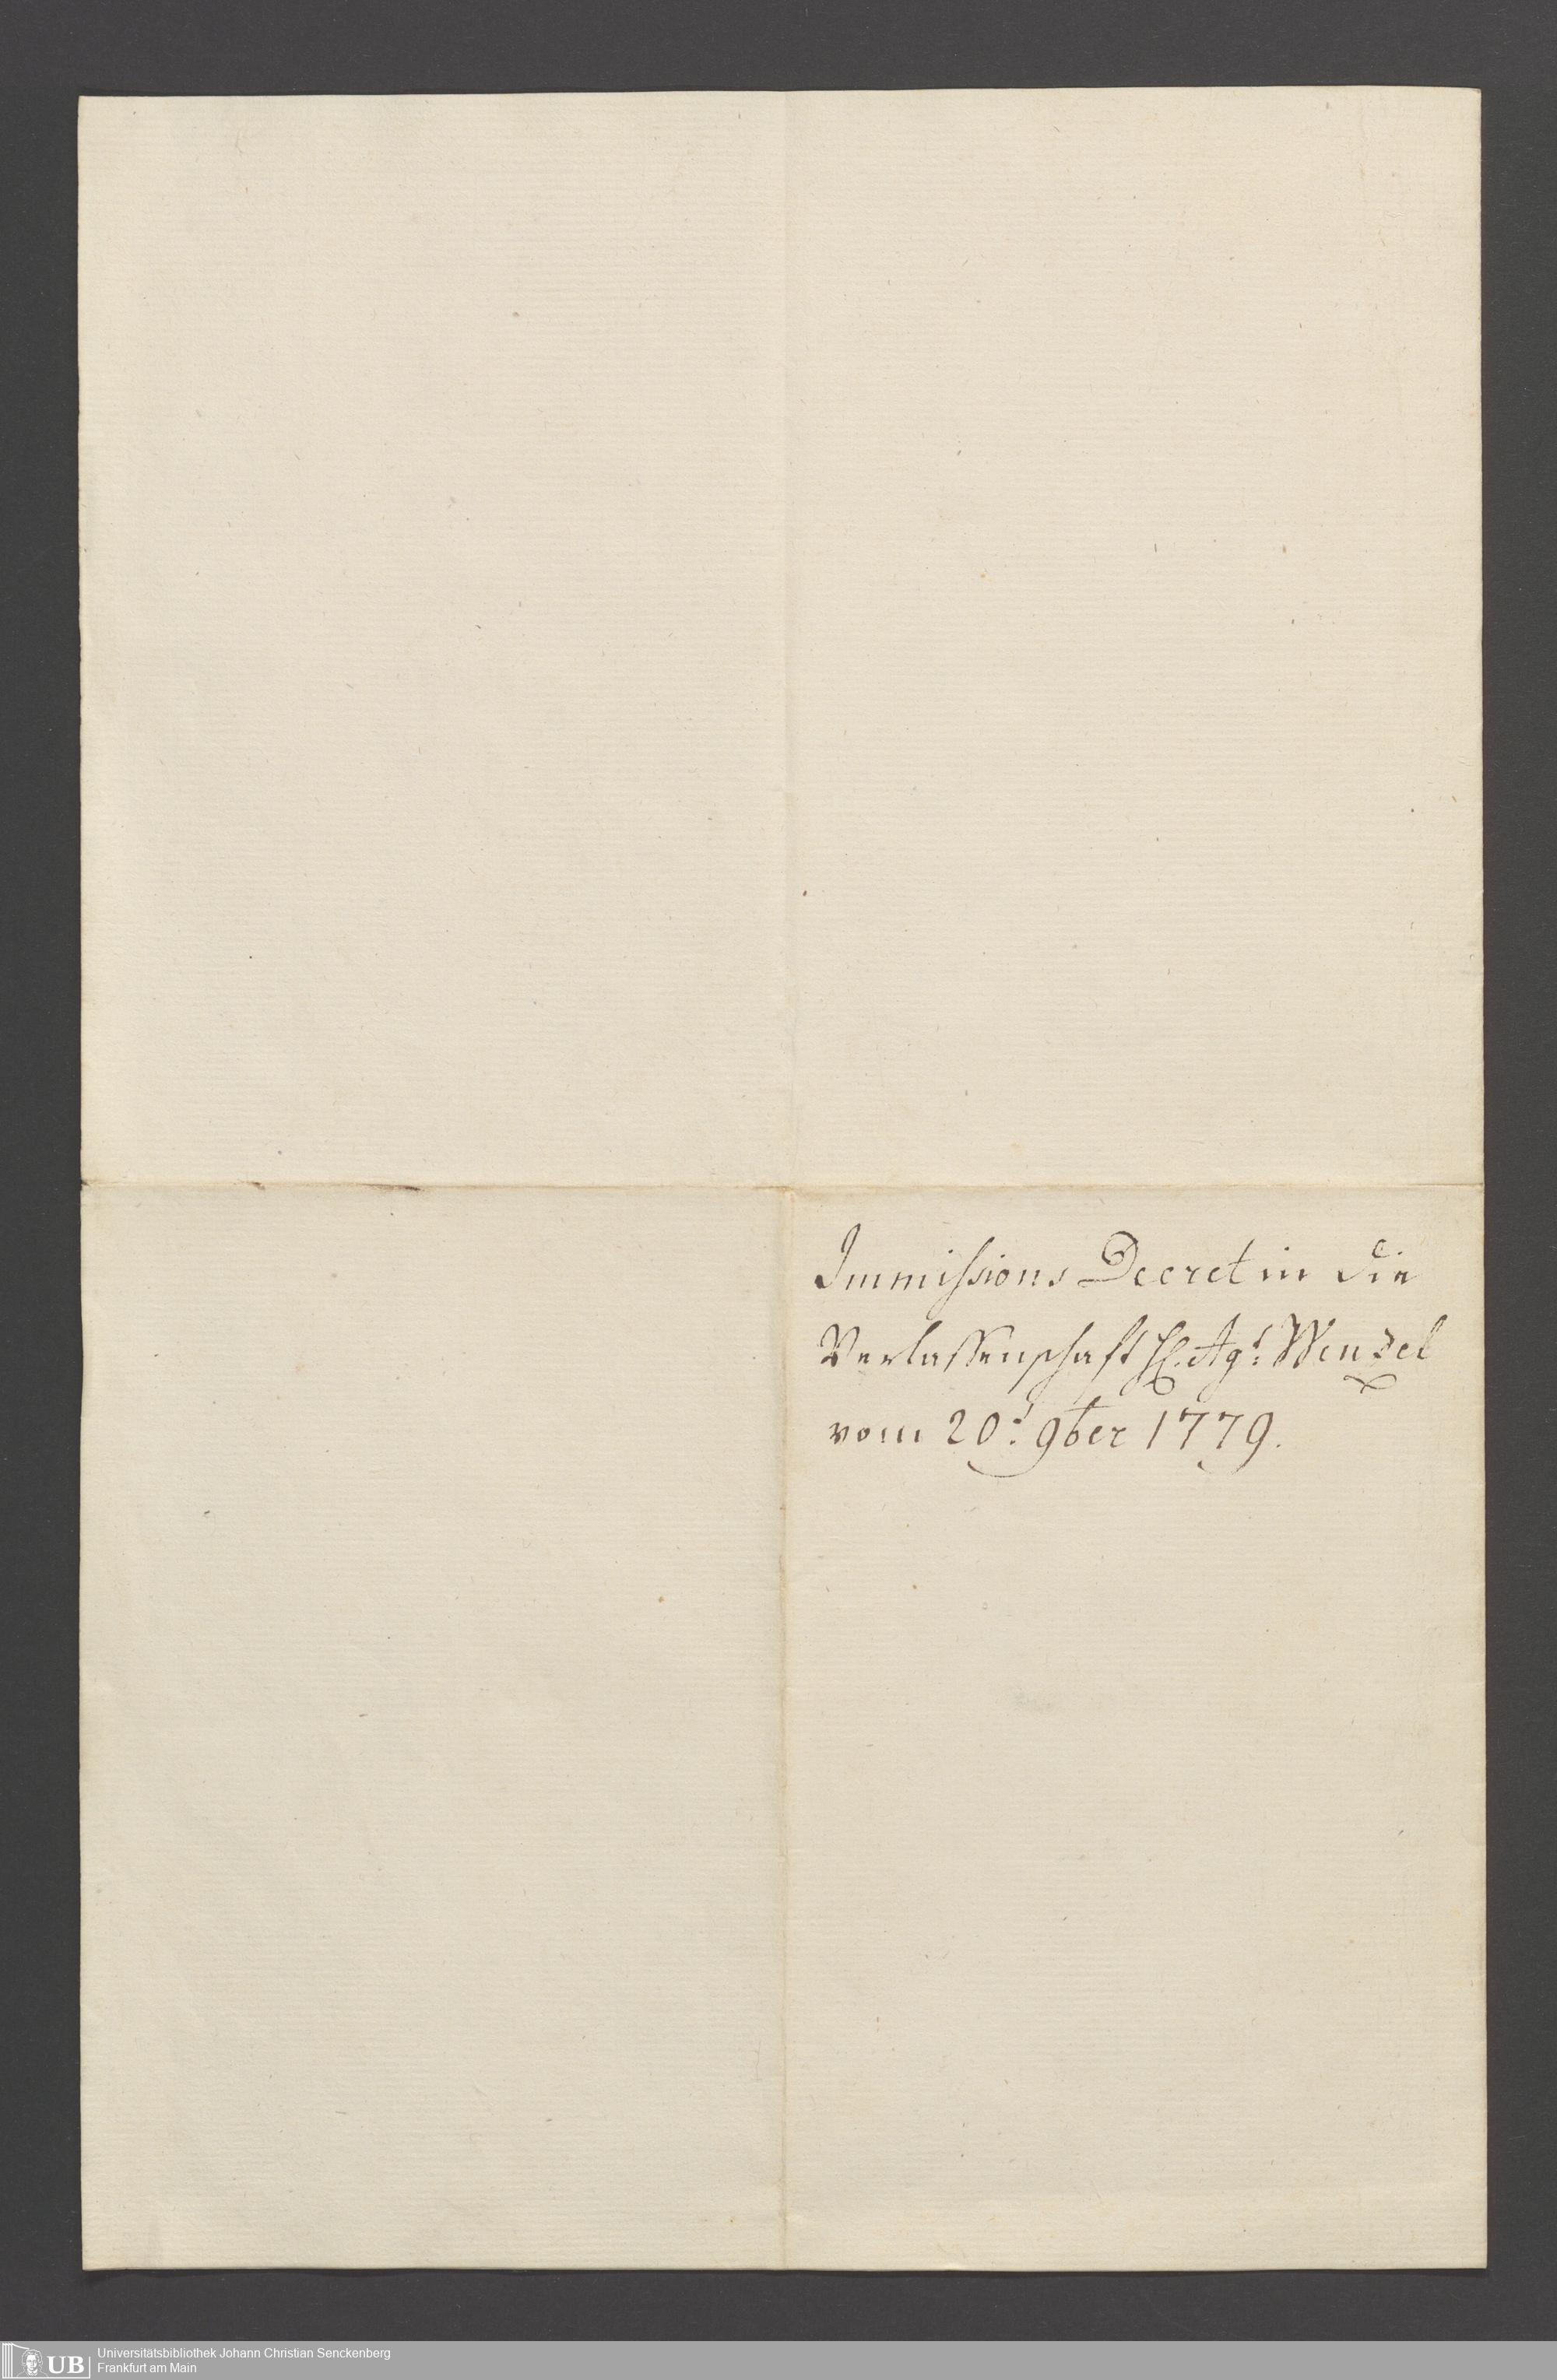 Immissions Decret in die
Verlassenschaft H. Agt: Wenzel
vom 20t: 9ber 1779.
UB Universitätsbibliothek Johann Christian Senckenberg
Frankfurt am Main